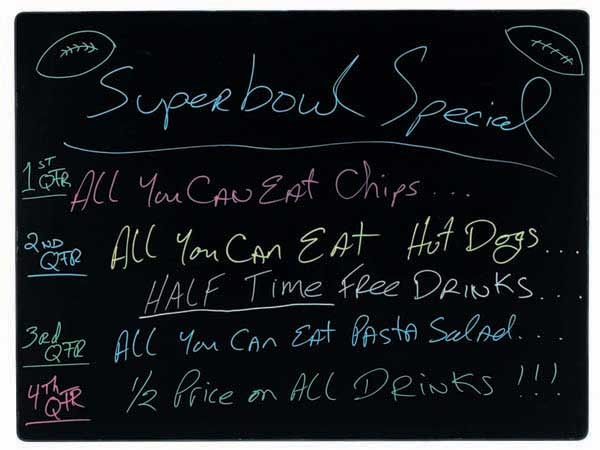 Superbowl Special
1ST QTR All You CAN EAt Chips...
2ND QTR All You Can EAt Hot Dogs...
HALF Time Free DRINKS....
3rd QTR All You Can EAt PAstA SalAd....
4Th QTR 1/2 Price on ALL DRINKS!!!